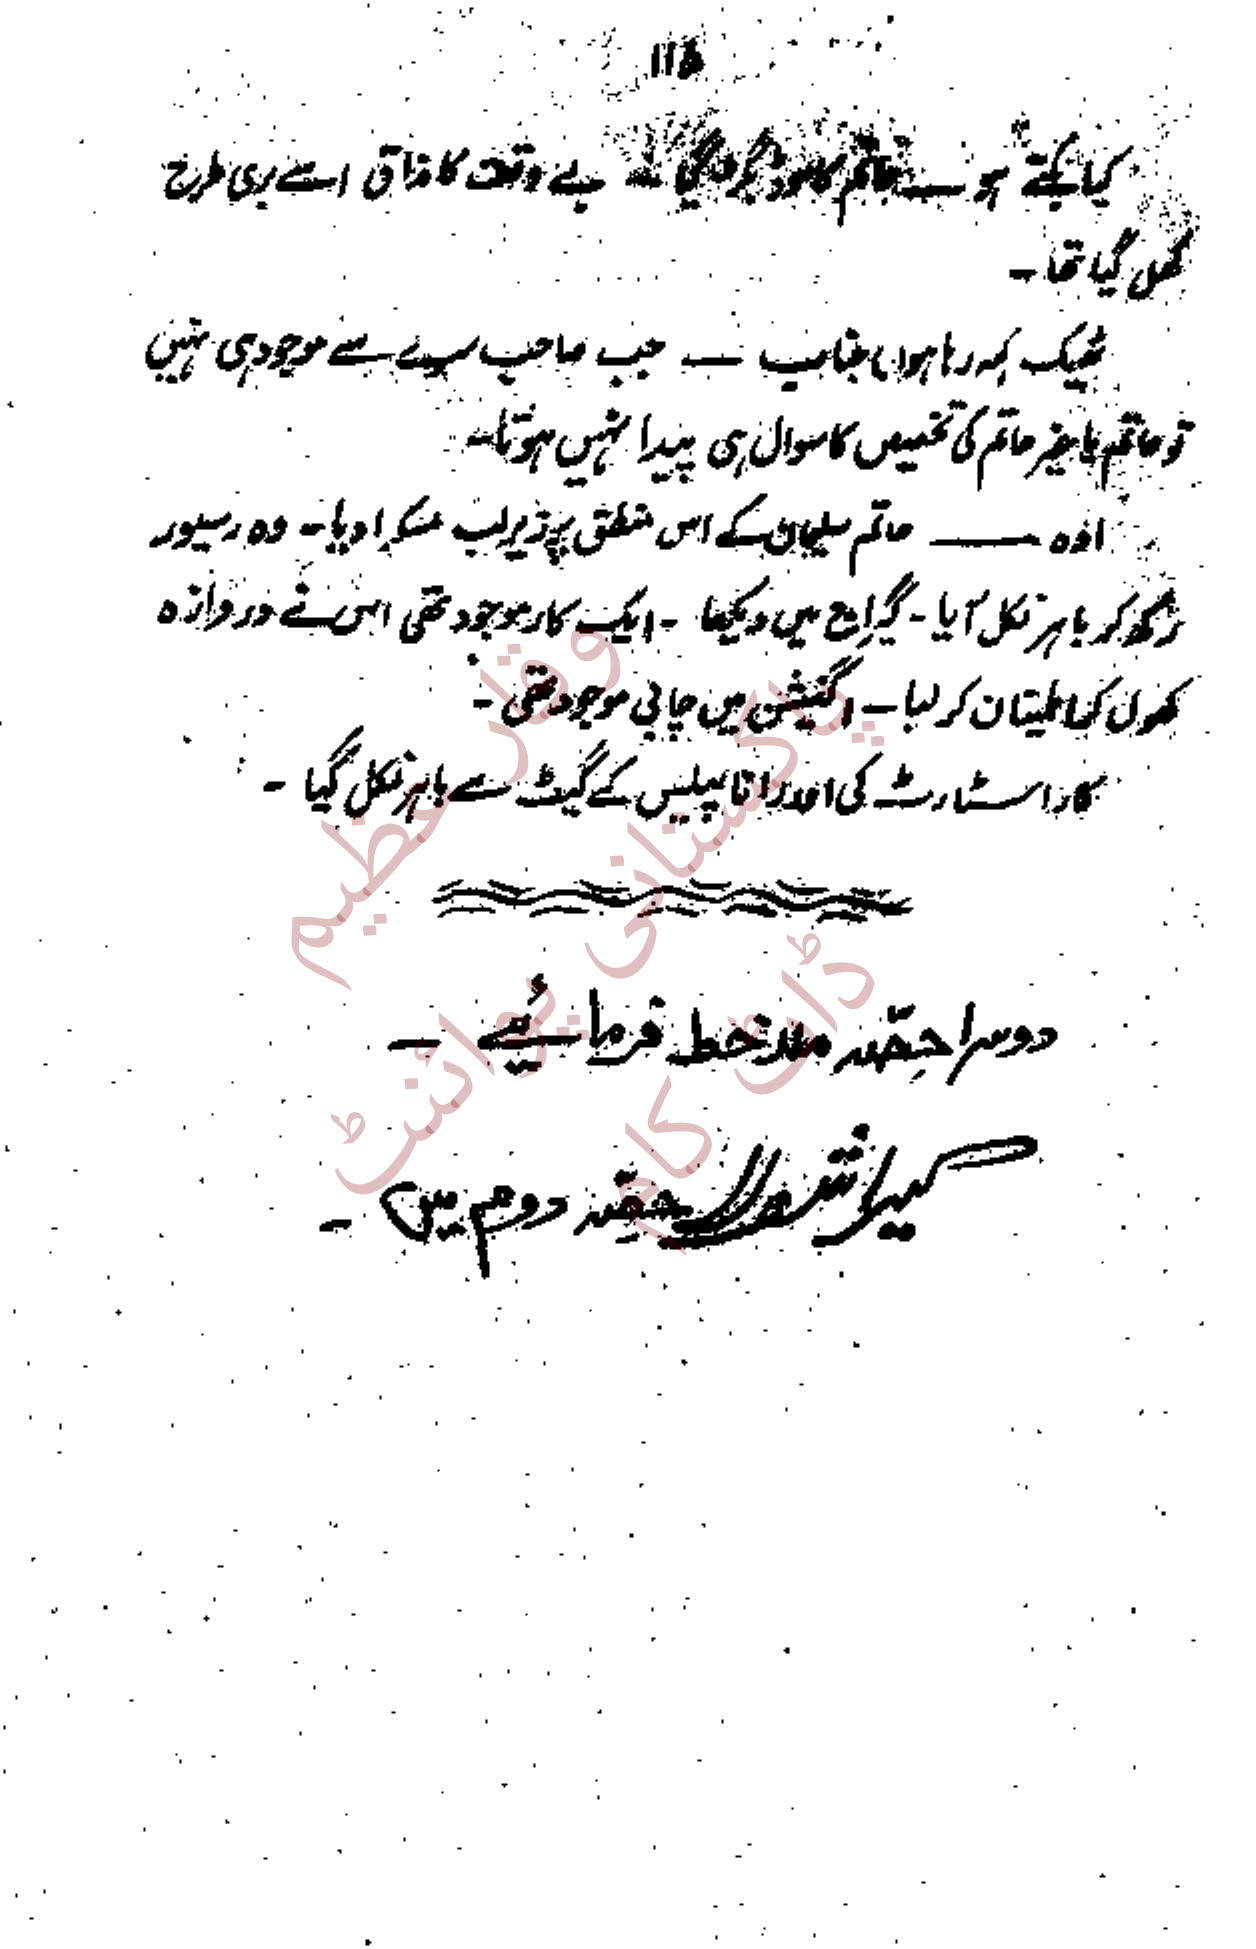 116
کیا بکتے ہو ــــ حاتم کا موڈ بگڑ گیا ــ بے وقت کا مذاق اسے بری طرح
کھل گیا تھا ـ
ٹھیک کہہ رہا ہوں جناب ــ جب صاحب سرے سے موجود ہی نہیں
تو حاتم یا بغیر حاتم کی تخصیص کا سوال ہی پیدا نہیں ہوتا ـ
اوہ ــــــ حاتم سلیمان کے اس منطق پر زیر لب مسکرا دیا ـ وہ رسیور
رکھ کر باہر نکل آیا ـ گیراج میں دیکھا ـ ایک کار موجود تھی اس نے دروازہ
کھول کر اطمینان کر لیا ــ اگنیشن میں چابی موجود تھی ـ
کار اسٹارٹ کی اور رانا پیلس کے گیٹ سے باہر نکل گیا ـ
دوسرا حصّہ ملاحظہ فرمائیے ـ
حصّہ دوم میں ـ
وقار عظیم
پاکستانی پوائنٹ
ڈاٹ کام